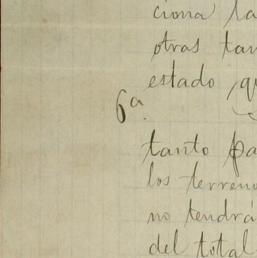 ciona la
otras tan
estado, qu
6a.
tanto pa
los terren
no tendrá
del total